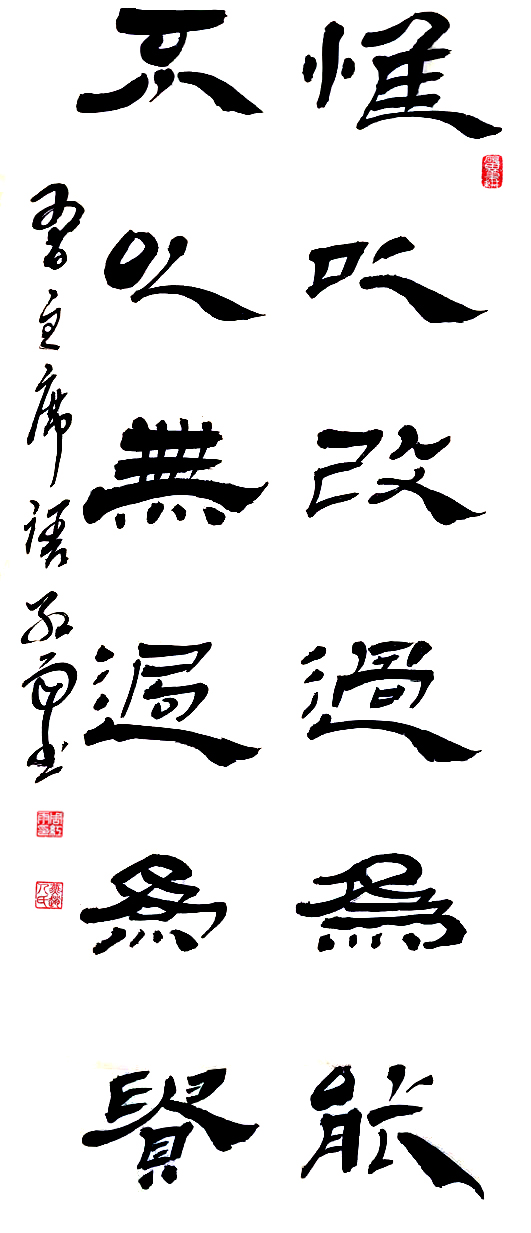 惟以改過為能
不以無過為賢
習主席語 紅雨書